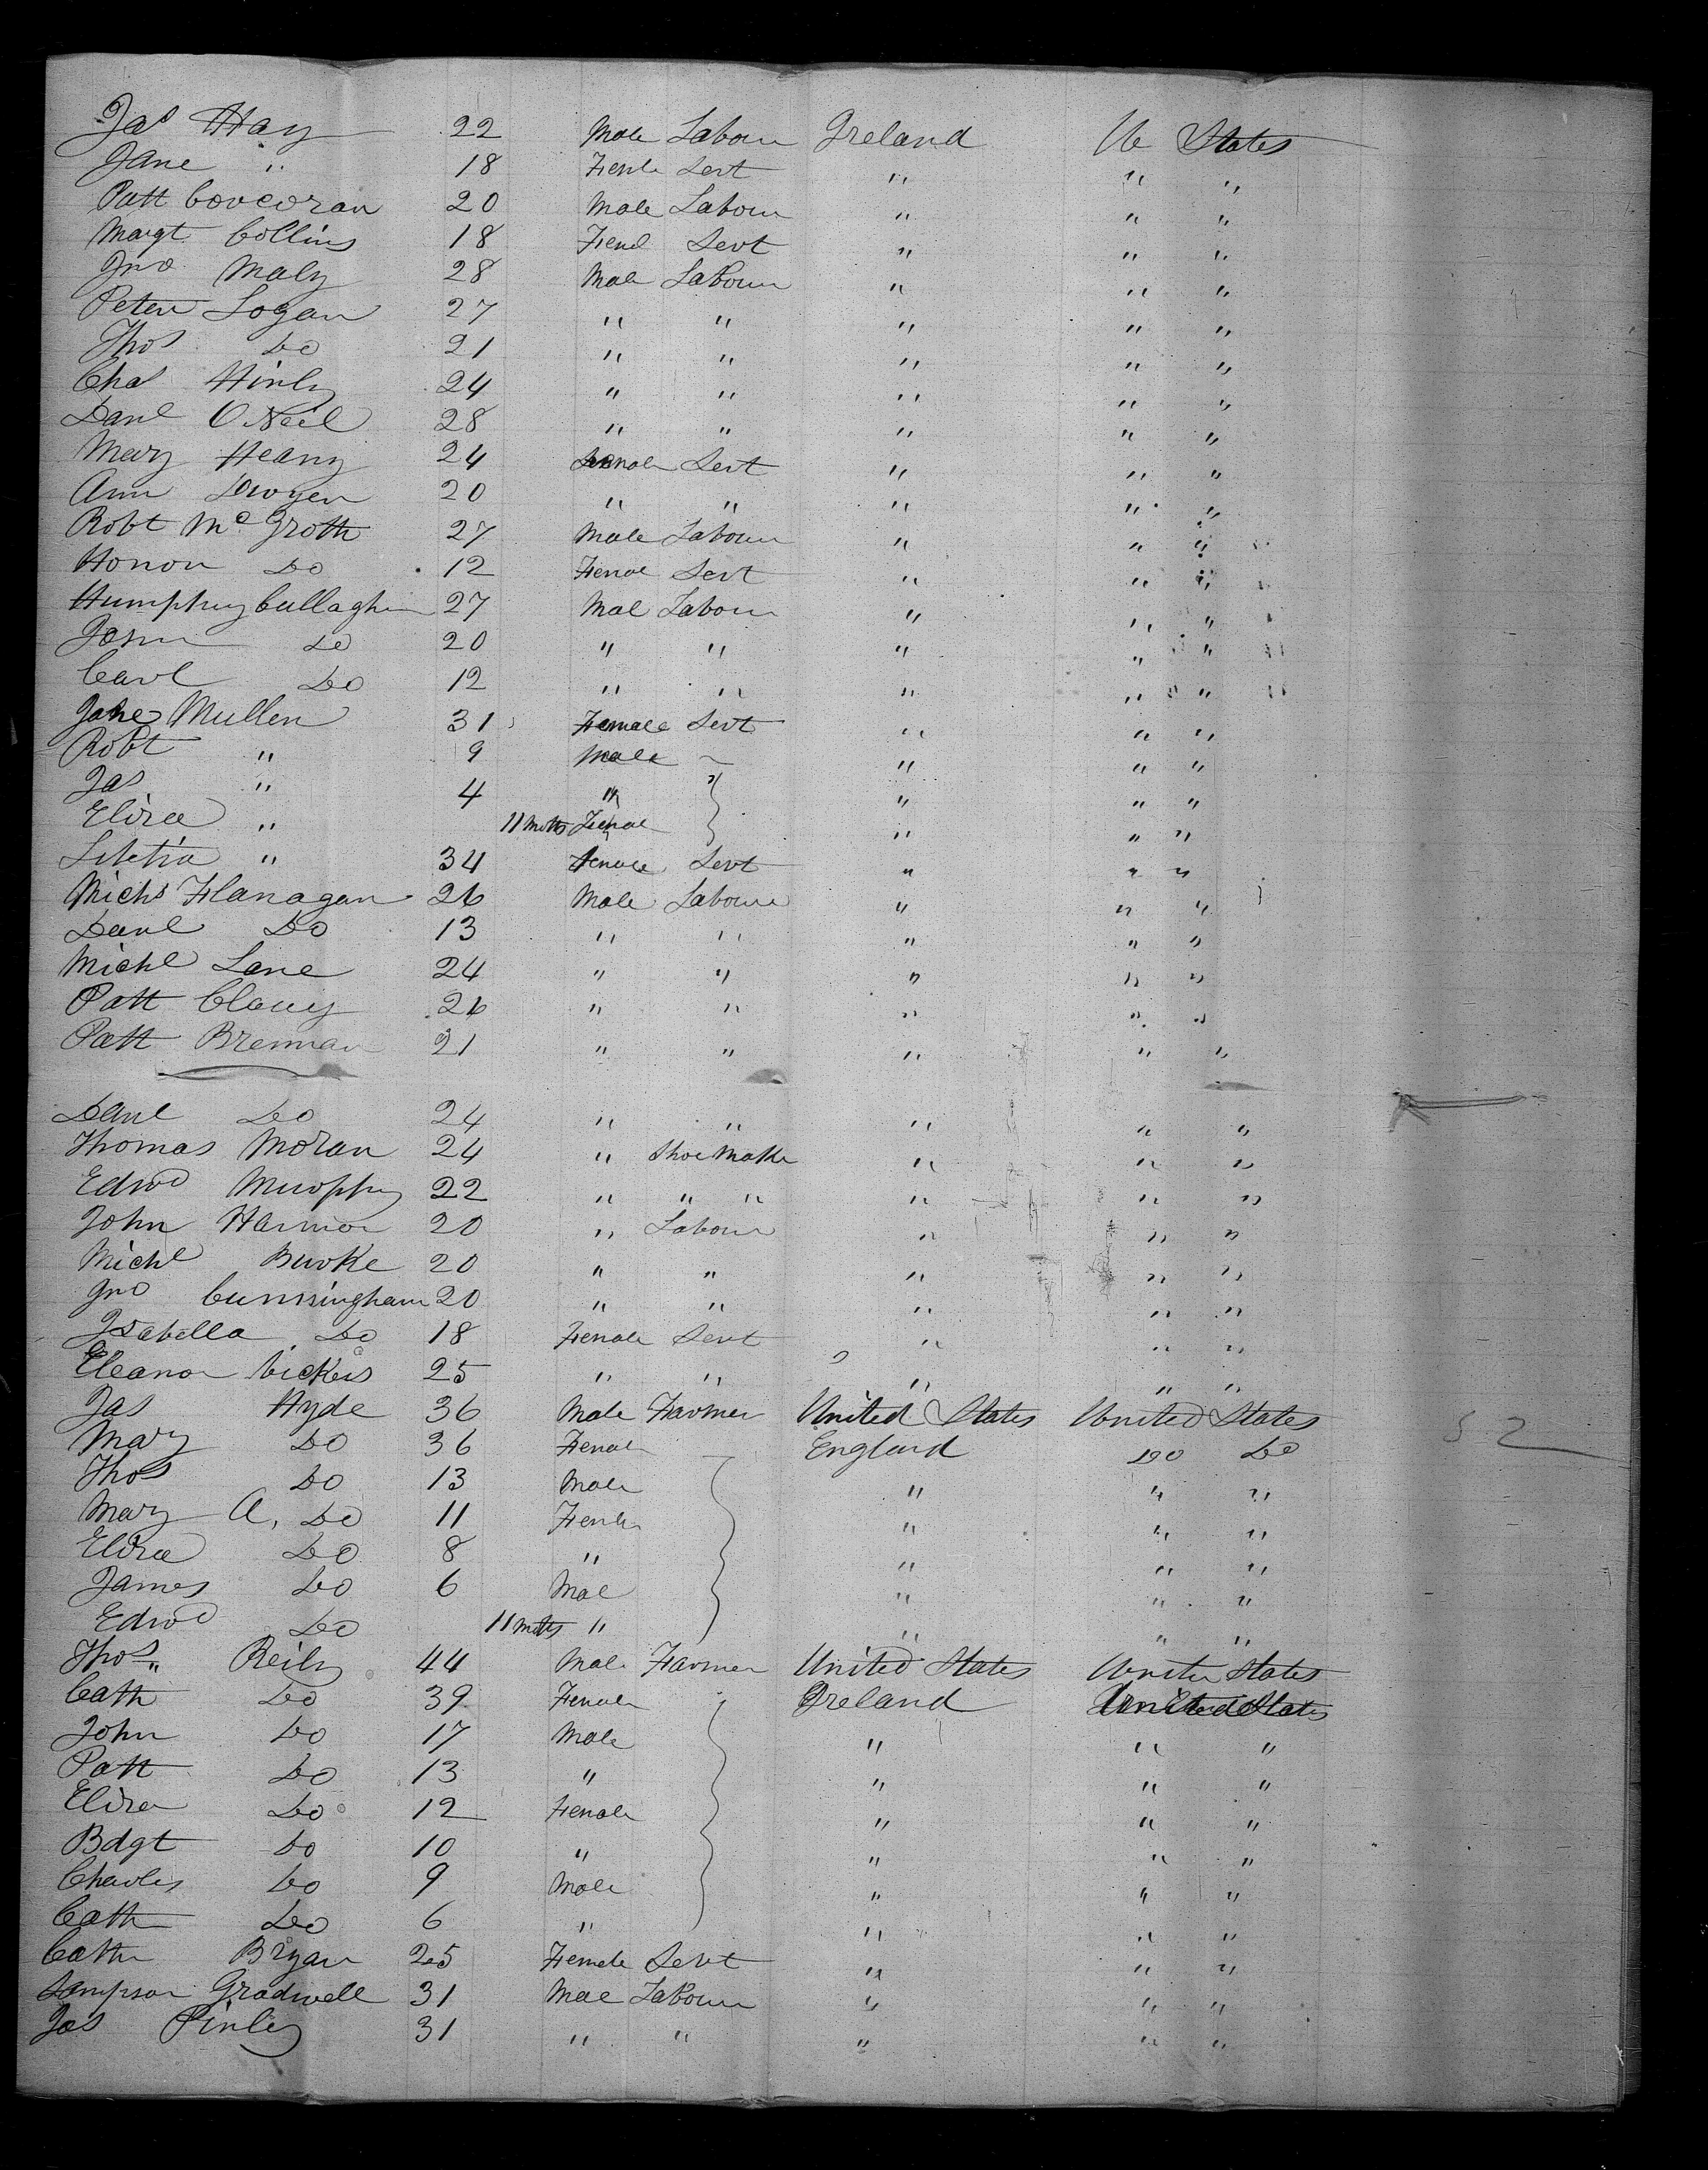 Jas Hay 22 Male Labour Ireland Ue States
Jane " 18 Femle Servt " " "
Patt Corcoran 20 Male Labour " " "
Margt Collins 18 Feml Servt " " "
Jno Maly 28 Male Labour " " "
Peter Logan 27 " " " " "
Thos Do 21 " " " " "
Chas Hinly 24 " " " " "
Danl O Neil 28 " " " " "
Mary Heany 24 Female Servt " " "
Ann Dwyer 20 " " " " "
Robt Mc Groth 27 Male Labour " " "
Honor Do 12 Femal Servt " " "
Humphrey Callaghan 27 Mal Labour " " "
John Do 20 " " " " "
Carl Do 12 " " " " "
Jane Mullen 31 Female Servt " " "
Robt " 9 Male ~ " " "
Jas " 4 " " " " "
Eliza " 11 Mnths Femal " " "
Letetia " 34 Female Servt " " "
Michl Flanagan 26 Male Labour " " "
Danl Do 13 " " " " "
Michl Lane 24 " " " " "
Patt Clancy 26 " " " " "
Patt Brennan 21 " " " " "
Danl Do 24 " " " " "
Thomas Moran 24 " Shoe Make " " "
Edwd Murphy 22 " " " " " "
John Harmon 20 " Labour " " "
Michl Burke 20 " " " " "
Jno Cunningham 20 " " " " "
Isabella Do 18 Female Servt " " "
Eleanor Vickers 25 " " " " "
Jas Hyde 36 Male Farmer United States United States
Mary Do 36 Female England Do Do
Thos Do 13 Male " " "
Mary A, Do 11 Femle " " "
Eliza Do 8 " " " "
James Do 6 Mal " " "
Edwd Do 11 Mnths " " " "
Thos " Reily 44 Male Farmer United States United States
Cath Do 39 Female Ireland United States
John Do 17 Male " " "
Patt Do 13 " " " "
Eliza Do 12 Female " " "
Bdgt Do 10 " " " "
Charles Do 9 Male " " "
Cath Do 6 " " " "
Cathn Bryan 25 Female Servt " " "
Sampson Gradwell 31 Male Labour " " "
Jas Finley 31 " " " " "